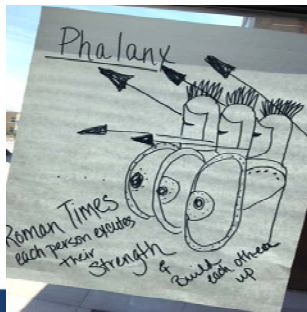 Phalanx
Roman Times
each person executes
their
Strength
& Build
each other
up